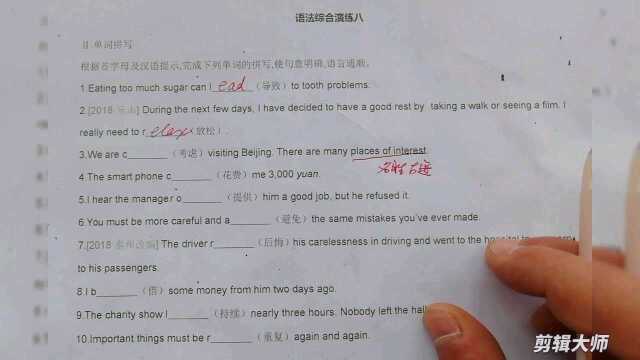 语法综合演练八
II.单词拼写
根据首字母及汉语提示,完成下列单词的拼写,使句意明确,语言通顺。
1.Eating too much sugar can l ead (导致) to tooth problems.
2.[2018·乐山] During the next few days, I have decided to have a good rest by taking a walk or seeing a film. I
really need to r elax (放松).
3.We are c_______ (考虑) visiting Beijing. There are many places of interest.
名胜古迹
4.The smart phone c_______ (花费) me 3,000 yuan.
5.I hear the manager o_______ (提供) him a good job, but he refused it.
6.You must be more careful and a_______ (避免) the same mistakes you've ever made.
7.[2018 改编] The driver r_______ (后悔) his carelessness in driving and went to the
to his passengers.
8.I b_______ (借) some money from him two days ago.
9.The charity show l_______ (持续) nearly three hours. Nobody left the hall
10.Important things must be r_______ (重复) again and again.
剪辑大师